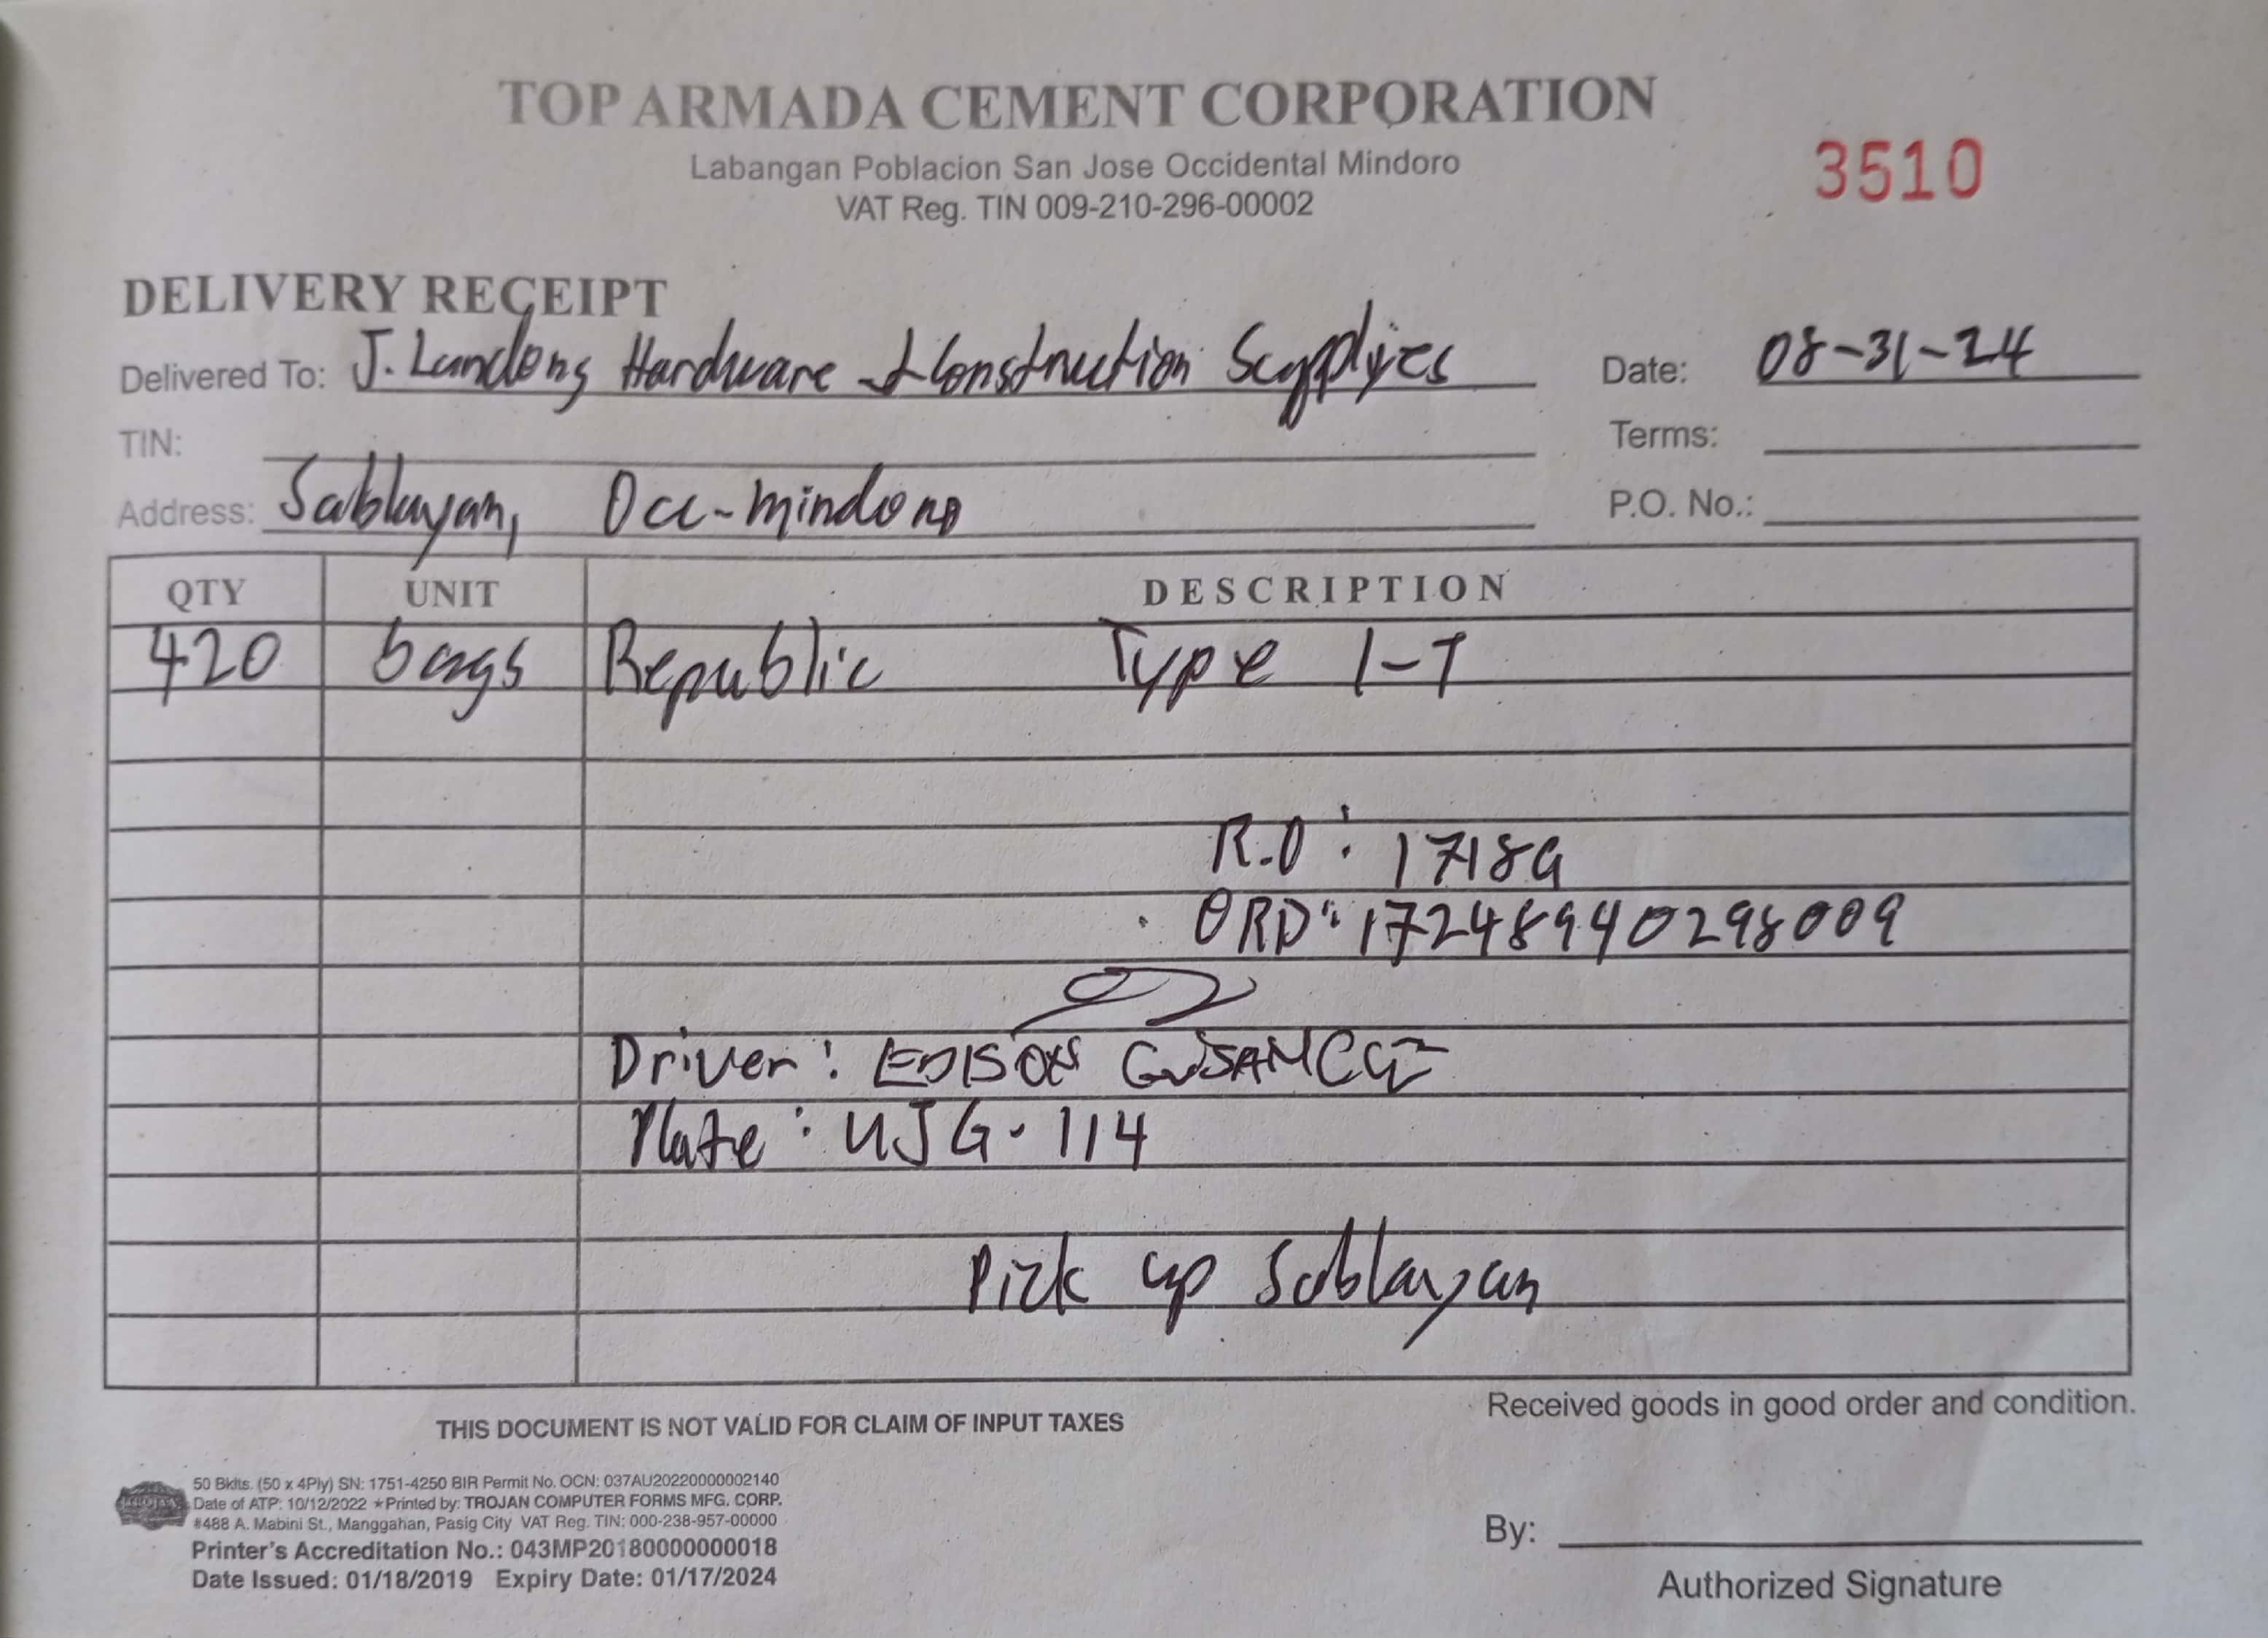 TOP ARMADA CEMENT CORPORATION
Labangan Poblacion San Jose Occidental Mindoro
VAT Reg. TIN 009-210-296-00002
3510
DELIVERY RECEIPT
Delivered To: J. Landong Hardware & Construction Supplies
Date: 08-31-24
TIN:
Terms:
Address: Sablayan, Occ-Mindoro
P.O. No.:
QTY UNIT DESCRIPTION
420 bags Republic Type 1-T
R.O: 17189
ORD: 17248940298009
Driver: EDISON
Plate: UJG-114
Pick up Sablayan
THIS DOCUMENT IS NOT VALID FOR CLAIM OF INPUT TAXES
Received goods in good order and condition.
50 Bklts. (50 x 4Ply) SN: 1751-4250 BIR Permit No. OCN: 037AU20220000002140
Date of ATP: 10/12/2022 ★Printed by: TROJAN COMPUTER FORMS MFG. CORP.
#488 A. Mabini St., Manggahan, Pasig City VAT Reg. TIN: 000-238-957-00000
Printer's Accreditation No.: 043MP20180000000018
Date Issued: 01/18/2019 Expiry Date: 01/17/2024
By:
Authorized Signature